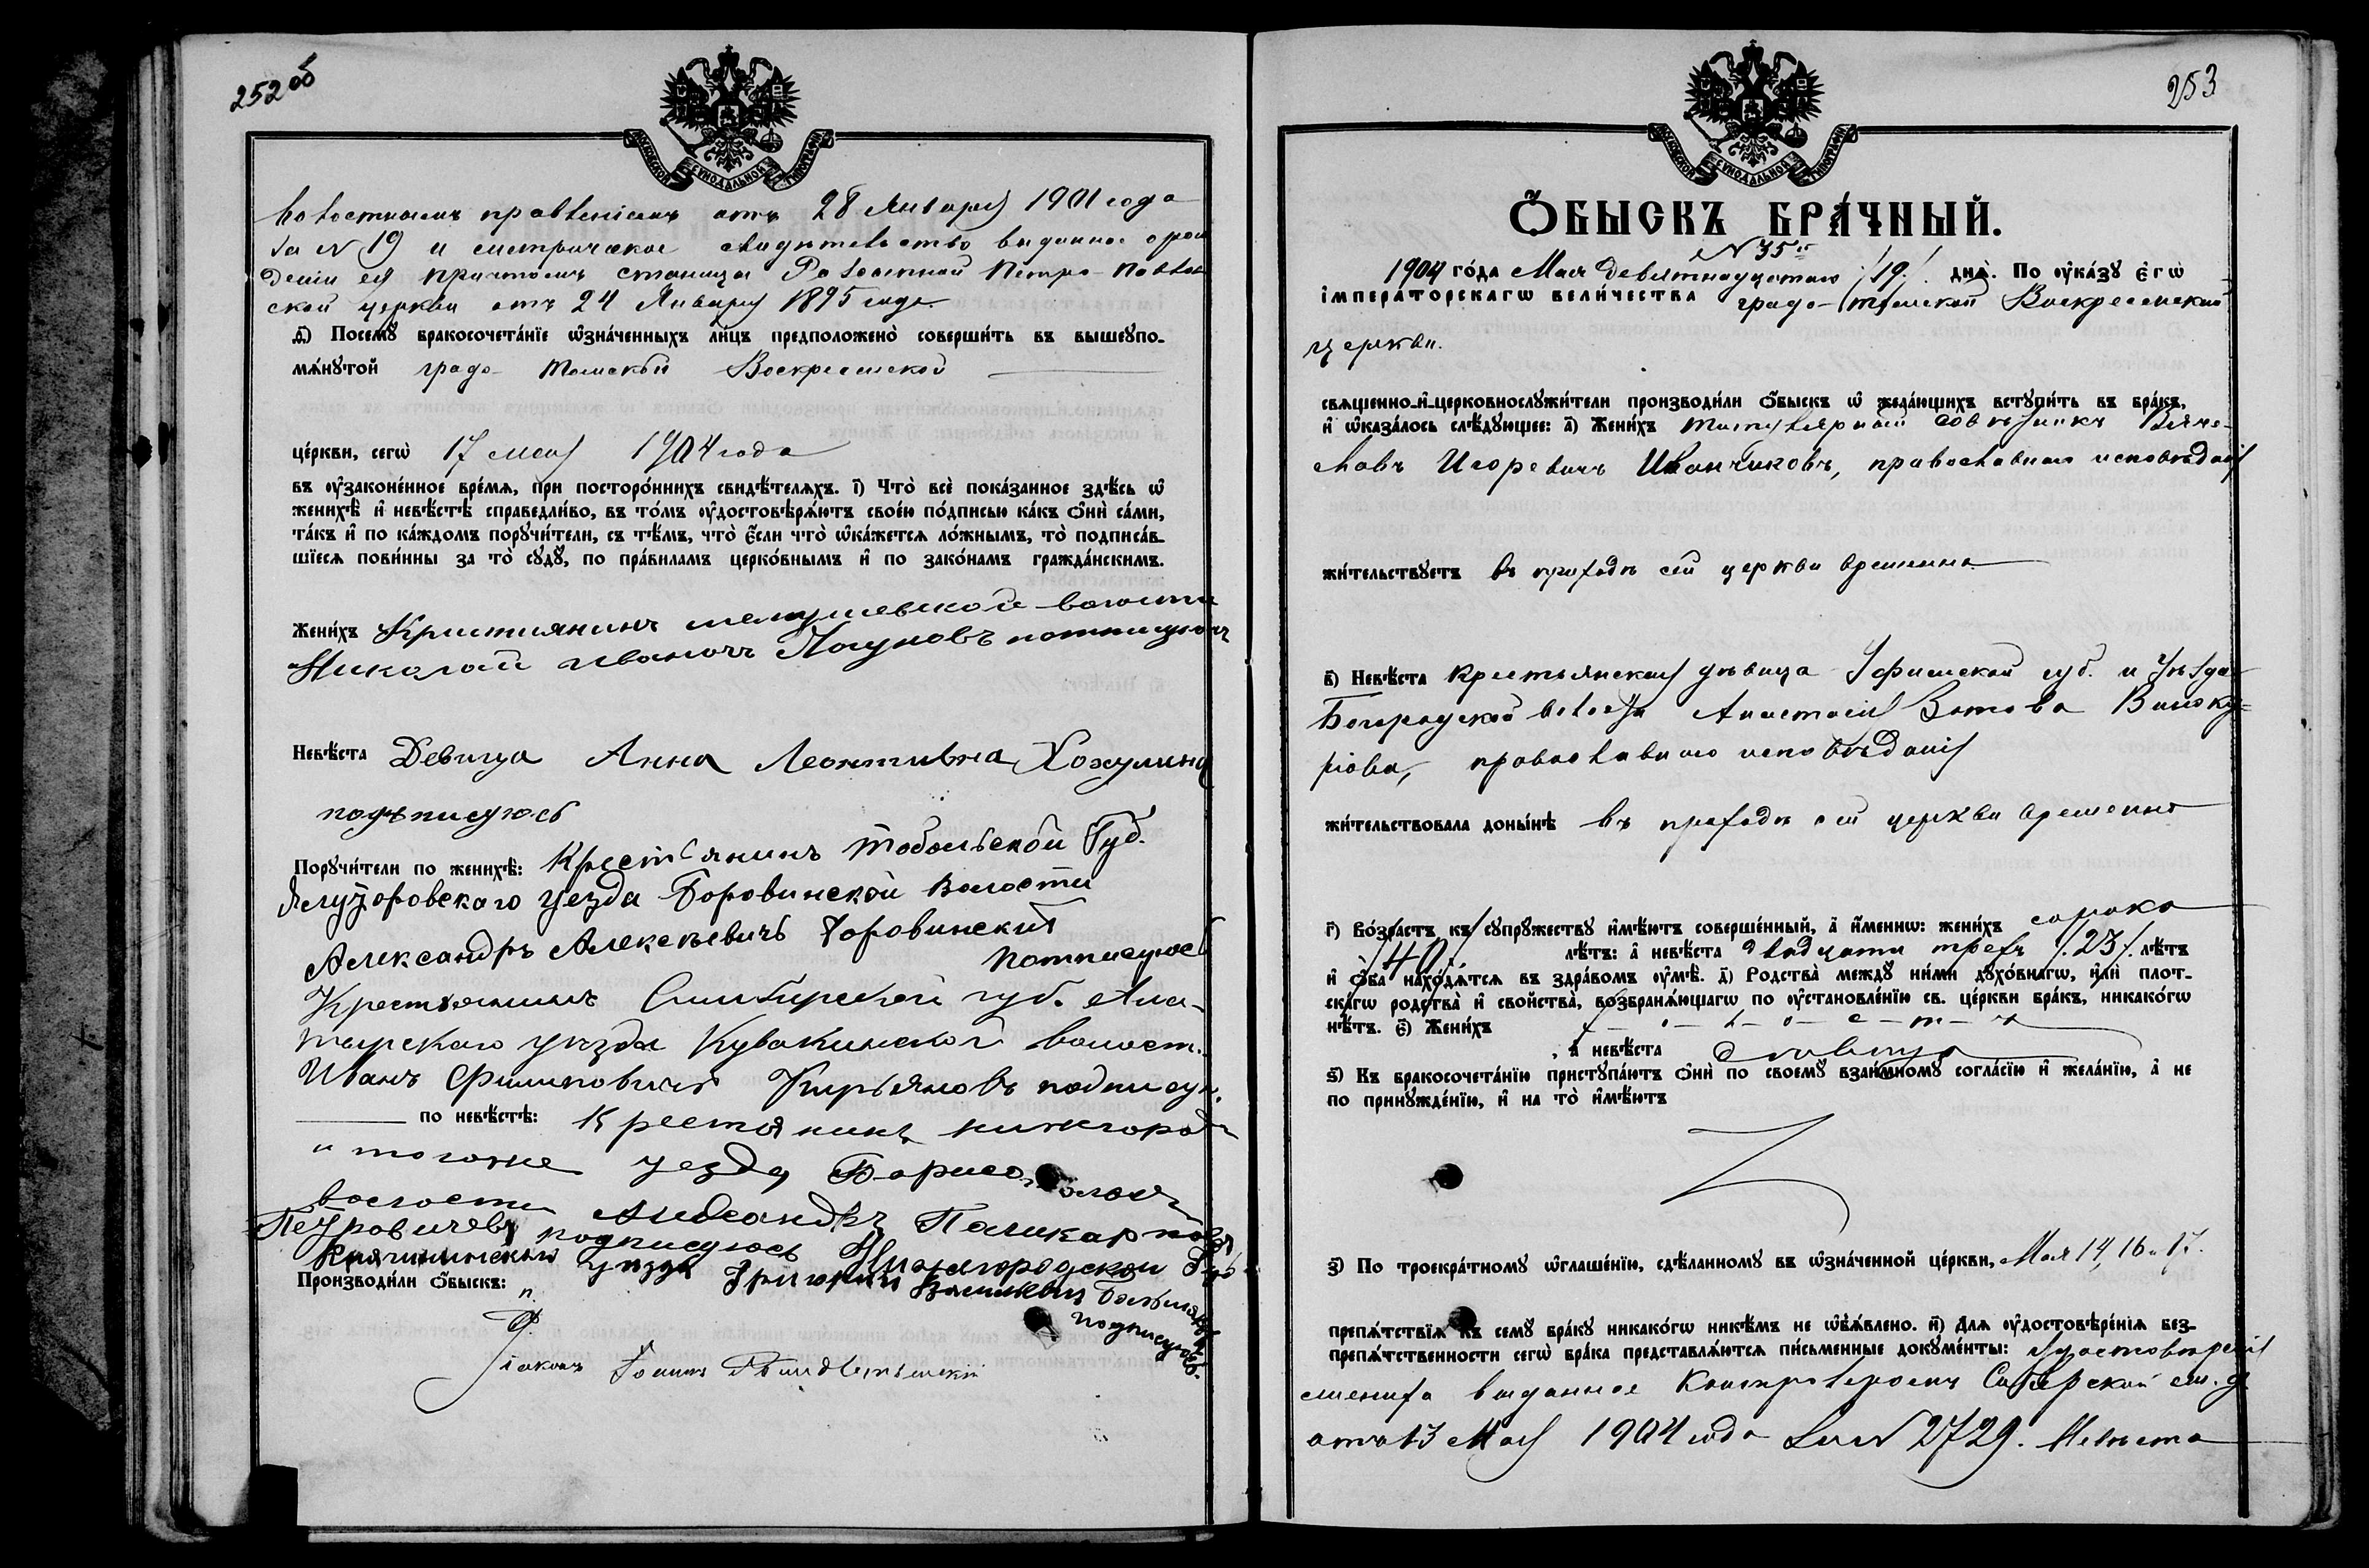 252 об
МОСКОВСКОЙ СѴНОДАЛЬНОЙ ТИПОГРАФІИ
волостнымъ правленіемъ отъ 28 Января 1901 года
за № 19 и метрическое свидѣтельство выданное о рож
деніи ея причтомъ станицы Петро-Павлов
ской церкви отъ 24 Января 1895 года
д҃) Посемꙋ бракосочета́нїе ѡзна́ченныхъ ли́цъ предположено̀ соверши́ть въ вышеꙋпо-
мѧ́нꙋтой градо-Томской Воскресенской
це́ркви, сегѡ̀ 17 мая 1904 года
въ оу҆зако́не́нное вре́мѧ, при посторо́ннихъ свидѣ́телѧхъ. і҃) Что̀ всѐ пока́занное здѣ́сь ѡ҆
женихѣ̀ и҆ невѣ́стѣ справедли́во, въ то́мъ оу҆достовѣрѧ́ютъ свое́ю по́дписью ка́къ ѻ҆нѝ са́ми,
та́къ и҆ по ка́ждомъ порꙋчи́тели, съ тѣ́мъ, что̀ є҆́сли что̀ ѡ҆ка́жетсѧ ло́жнымъ, то̀ подписа́в-
шїесѧ пови́нны за то̀ сꙋдꙋ̀, по пра́виламъ церко́внымъ и҆ по зако́намъ гражда́нскимъ.
Жени́хъ Кристиянинъ волости
Николай Ивановъ
Невѣ́ста Девица Анна Леонтивна Хохулина
подъписуюсь
Порꙋчи́тели по женихѣ̀: Крестьянинъ Тобольской Губ.
Ялуторовского уезда Боровинской Волости
Александръ Алексѣевичъ Боровинский
потписуюсь
Крестьянинъ Симбирской губ. Ала-
тырскаго уѣзда Кувакинской волост.
Иванъ Филиповичъ Кирьяновъ подписую.
по невѣ́стѣ: Крестянинъ нижегород
и тогоже уезда
волости Александръ Поликарповъ
Петровичевъ подписуюсь Нижегородской Губ
Княгининскаго уѣзда Григорий Васильевъ
подписуюсь.
Производи́ли ѻ҆́быскъ:
Дїаконъ Іоаннъ
253
МОСКОВСКОЙ СѴНОДАЛЬНОЙ ТИПОГРАФІИ
Ѻ҆́БЫСКЪ БРА́ЧНЫЙ.
№ 35й
1904 го́да Мая девятнадцатаго /19/ днѧ̀. По оу҆ка́зꙋ є҆гѡ̀
і҆мпера́торскагѡ вели́чества градо-Томской Воскресенской
церкви.
свѧще́нно-и҆-церковнослꙋжи́тели производи́ли ѻ҆́быскъ ѡ҆ жела́ющихъ встꙋпи́ть въ бра́къ,
и҆ ѡ҆каза́лось слѣ́дꙋющее: а҃) Жени́хъ титулярный совѣтникъ Вяче-
славъ Игоревичъ Иванчиковъ, православнаго исповѣданія
жи́тельствꙋетъ въ приходѣ сей церкви временно
в҃) Невѣ́ста крестьянская дѣвица Уфимской губ. и уѣзда
Богородской волости Анастасія Зотова Виноку-
рова, православнаго исповѣданія
жи́тельствовала доны́нѣ въ приходѣ сей церкви временно
г҃) Во́зрастъ къ сꙋпрꙋ́жествꙋ и҆мѣ́ютъ соверше́нный, а҆ и҆́меннѡ: жени́хъ сорока
/40/ лѣ́тъ: а҆ невѣ́ста двадцати трехъ /23/. лѣ́тъ
и҆ ѻ҆́ба нахо́дѧтсѧ въ здра́вомъ оу҆мѣ̀. д҃) Родства̀ междꙋ̀ ни́ми дꙋхо́внагѡ, и҆лѝ пло́т-
скагѡ родства̀ и҆ свойства̀, возбранѧ́ющагѡ по оу҆становле́нїю св. це́ркви бра́къ, никако́гѡ
нѣ́тъ. є҃) Жени́хъ х-о-л-о-с-т-ъ
, а҆ невѣ́ста дѣвица
ѕ҃) Къ бракосочета́нїю пристꙋпа́ютъ ѻ҆нѝ по своемꙋ̀ взаи́мномꙋ согла́сїю и҆ жела́нїю, а҆ не
по принꙋжде́нїю, и҆ на то̀ и҆мѣ́ютъ
з҃) По троекра́тномꙋ ѡ҆глаше́нїю, сдѣ́ланномꙋ въ ѡ҆зна́ченной це́ркви, Мая 14, 16 и 17.
препѧ́тствїѧ къ семꙋ̀ бра́кꙋ никако́гѡ никѣ́мъ не ѡ҆бъѧ́влено. и҃) Длѧ оу҆достовѣре́нїѧ без-
препѧ́тственности сегѡ̀ бра́ка представлѧ́ютсѧ пи́сьменные докꙋме́нты: удостовѣреніе
жениха выданное Контролеромъ Сибирской ж. д.
отъ 13 Мая 1904 года за № 2729. Невѣста